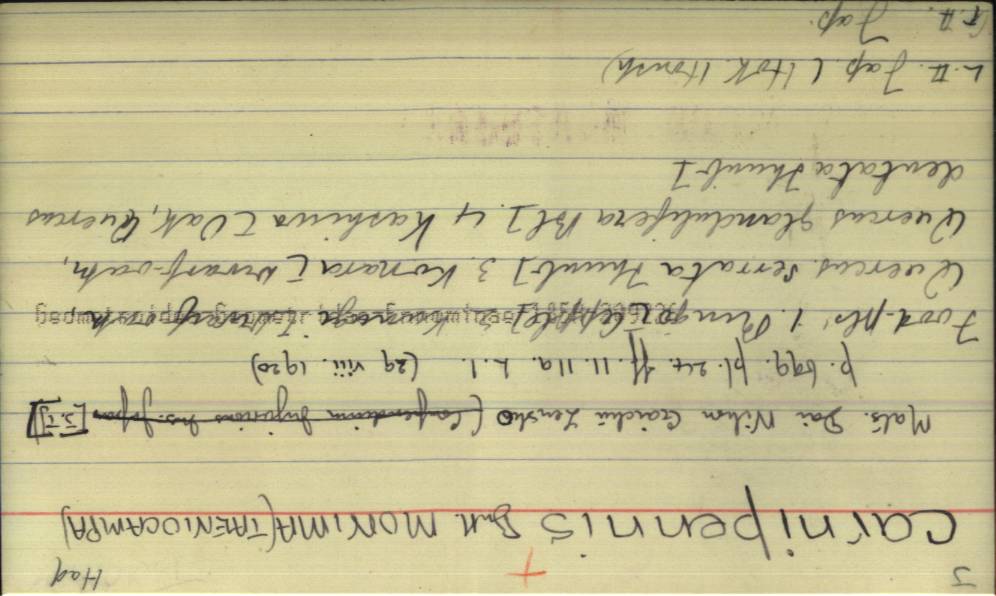 J Had
+
carnipennis Butl. MONIMA (TAENIOCAMPA)
Mats. Dai Nihon Gaichū Zensho (Compendium Injurious Ins. Japan [J. T.]
p. 699. pl. 24. ff. 11. 11a. L. I. (29 viii. 1920)
Food-pls: 1. Ringo [Apple]
Quercus serrata Thunb.] 3. Konara [Dwarf-oak,
Quercus glandulifera Bl.]. 4 Kashiwa [Oak, Quercus
dentata Thunb.]
L. II. Jap. (Hok. Honsh)
F. II. Jap.